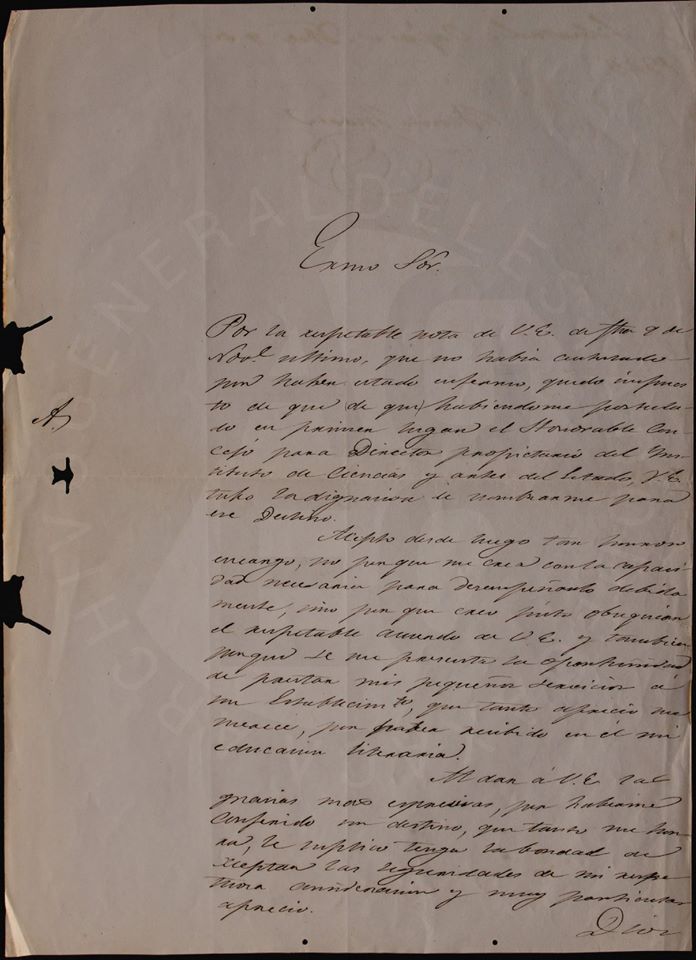 Exmo Sór.
A
Por la respetable nota de V.E. de fha 9 de
Novᵉ ultimo, que no habia contestado
por haber estado enfermo, quedo impues-
to de que (de que) habiendome postula-
do en primer lugar el Honorable Con-
cejo para Director propietario del Ins-
tituto de Ciencias y artes del Estado, V.E.
tubo la dignacion de nombrarme para
ese Destino.
Acepto desde luego tan honroso
encargo, no por que me crea con la capaci-
dad necesaria para desempeñarlo debida-
mente, sino por que creo justo obsequiar
el respetable acuerdo de V.E. y tambien
porque se me presenta la oportunidad
de prestar mis pequeños servicios á
un Establecimᵗᵒ, que tanto aprecio me
merece, por haber recibido en él mi
educacion literaria.
Al dar á V.E. las
gracias mas expresivas, por haberme
conferido un destino, que tanto me hon-
ra, le suplico tenga la bondad de
aceptar las seguridades de mi respe-
tuosa consideracion y muy particular
aprecio.
Dios